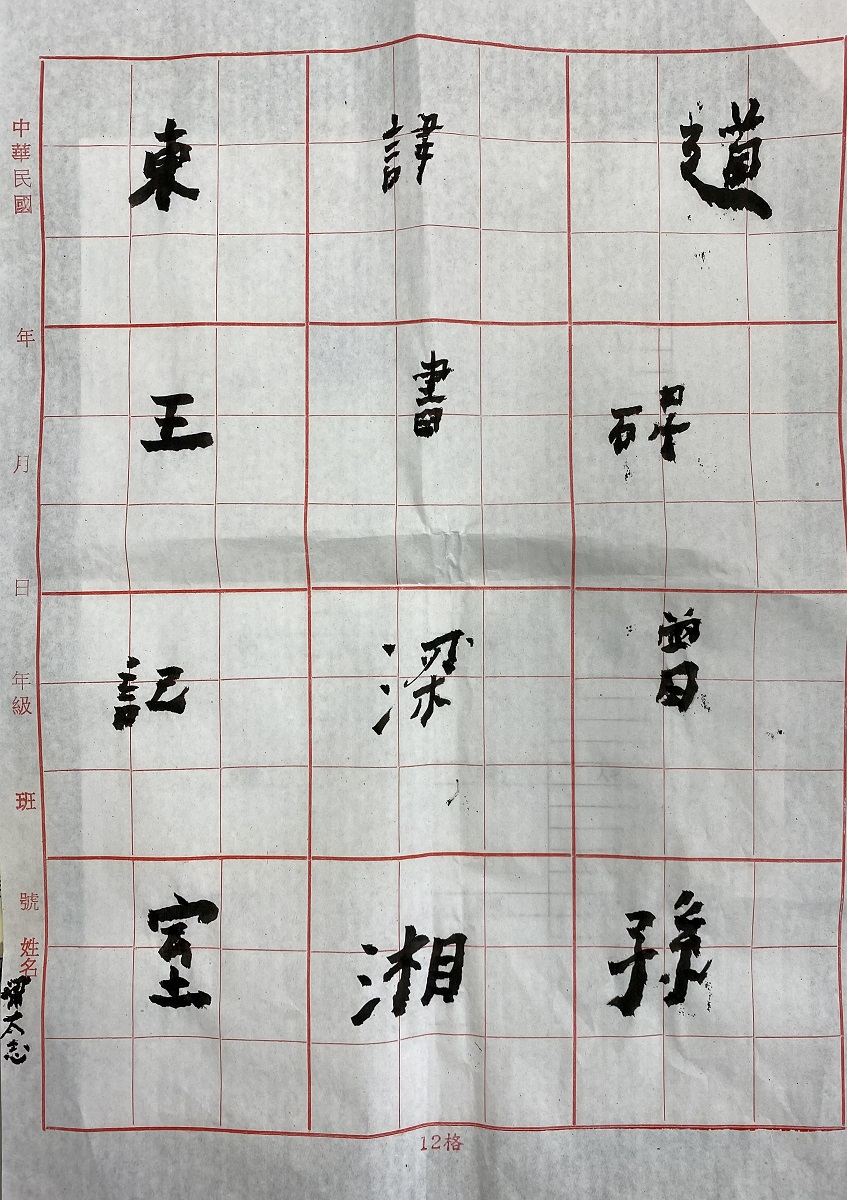 道碑曾孫
諱書深湘
東王記室
中華民國 年 月 日 年級 班 號 姓名
12格